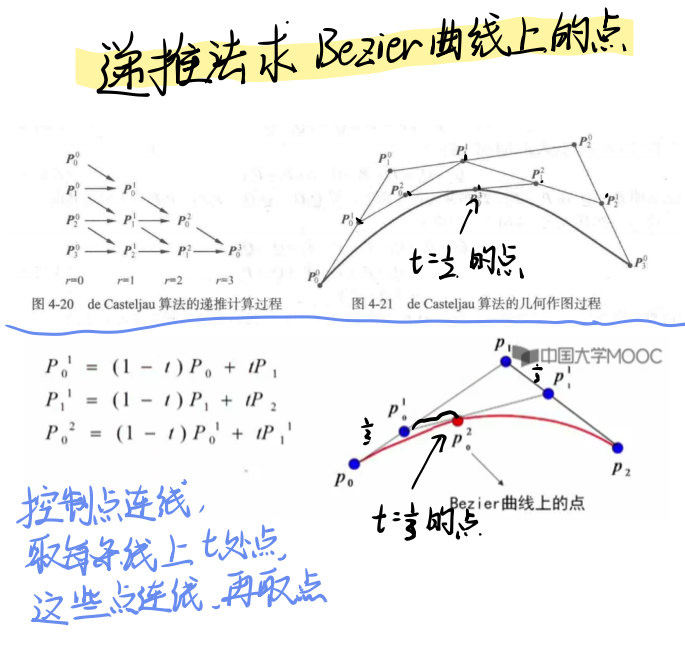 递推法求 Bezier曲线上的点
P₀⁰
P₁⁰ P₀¹
P₂⁰ P₁¹ P₀²
P₃⁰ P₂¹ P₁² P₀³
r=0 r=1 r=2 r=3
图 4-20 de Casteljau 算法的递推计算过程
P₁⁰ P₁¹ P₂⁰
P₀² P₁²
P₀¹ P₂¹
t=1/2 的点
P₀⁰ P₃⁰
图 4-21 de Casteljau 算法的几何作图过程
P₀¹ = (1 - t)P₀ + tP₁
P₁¹ = (1 - t)P₁ + tP₂
P₀² = (1 - t)P₀¹ + tP₁¹
p₁ 中国大学MOOC
1/3 p₁¹
p₀¹
1/3 p₀²
p₀ p₂
Bezier曲线上的点
t=1/3的点
控制点连线,
取每条线上t处点,
这些点连线,再取点